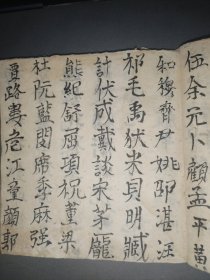 伍余元卜顧孟平黄
和穆齊尹姚邵湛汪
祁毛禹狄米貝明臧
計伏成戴談宋茅龐
熊紀舒屈項祝董梁
杜阮藍閔席季麻强
賈路婁危江童顔郭